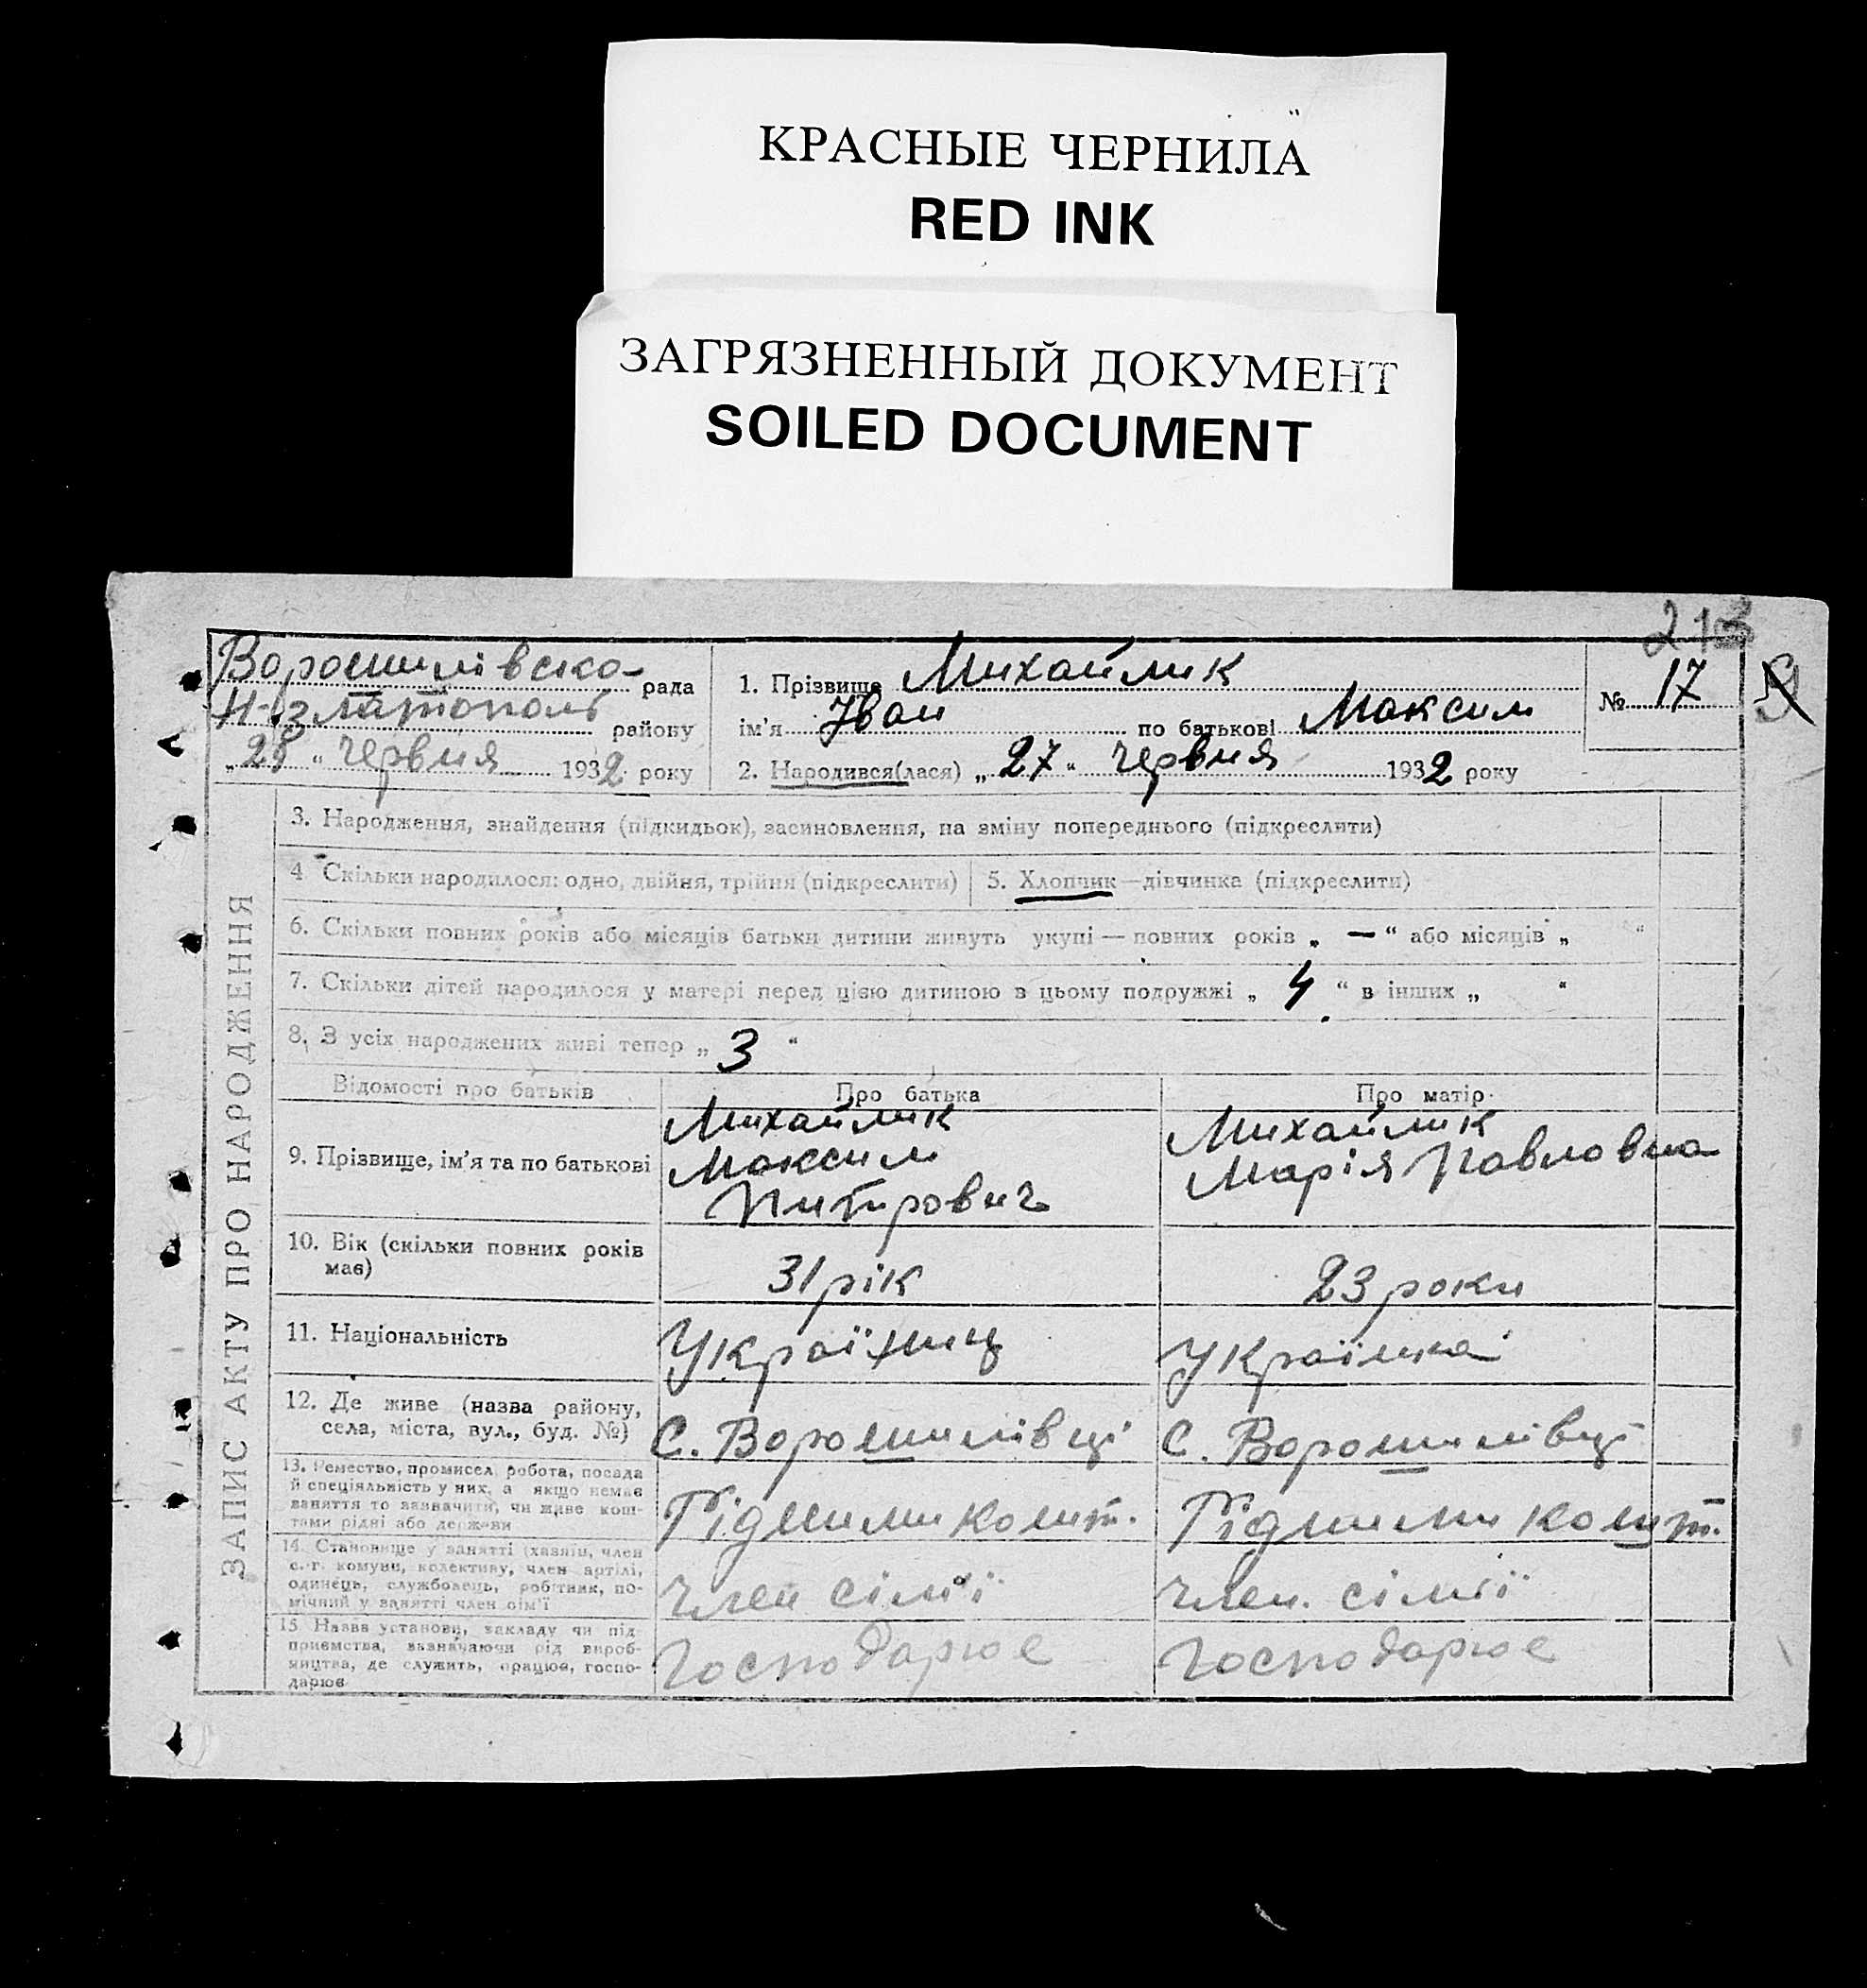 КРАСНЫЕ ЧЕРНИЛА
RED INK
ЗАГРЯЗНЕННЫЙ ДОКУМЕНТ
SOILED DOCUMENT
213
Ворошилівсько- рада
Н-Златополь району
„28“ червня 1932 року
1. Прізвище Михайлик
ім'я Іван по батькові Максим
2. Народився(лася) „27“ червня 1932 року
№ 17
ЗАПИС АКТУ ПРО НАРОДЖЕННЯ
3. Народження, знайдення (підкидьок), засиновлення, на зміну попереднього (підкреслити)
4 Скільки народилося: одно, двійня, трійня (підкреслити)
5. Хлопчик—дівчинка (підкреслити)
6. Скільки повних років або місяців батьки дитини живуть укупі — повних років „ — “ або місяців „ “
7. Скільки дітей народилося у матері перед цією дитиною в цьому подружжі „ 4 “ в інших „ “
8. З усіх народжених живі тепер „ 3 “
Відомості про батьків
Про батька
Про матір
9. Прізвище, ім'я та по батькові
Михайлик
Максим
Питрович
Михайлик
Марія Павловна
10. Вік (скільки повних років
має)
31 рік
23 роки
11. Національність
Україниц
Українка
12. Де живе (назва району,
села, міста, вул., буд. №)
С. Ворошилівці
С. Ворошилівці
13. Ремество, промисел, робота, посада
й спеціяльність у них, а якщо немає
заняття то зазначити, чи живе кош-
тами рідні або держави
Рідними кошт.
Рідними кошт.
14. Становище у занятті (хазяїн, член
с.-г. комуни, колективу, член артілі,
одинець, службовець, робітник, по-
мічний у занятті член сім'ї
член сімї
член. сімї
15 Назва установи, закладу чи під-
приємства, зазначаючи рід вироб-
ництва, де служить, працює, госпо-
дарює
Господарює
Господарює